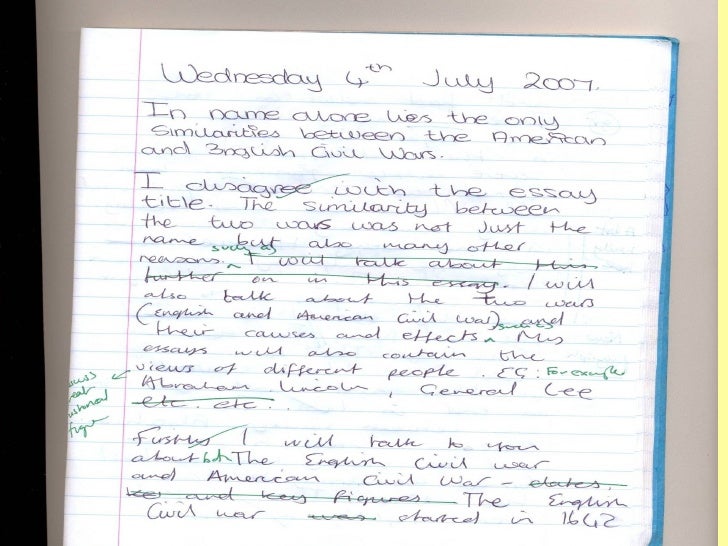 Wednesday 4th July 2007.
In name alone lies the only
Similarities between the American
and English Civil Wars.
I disagree with the essay
title. The similarity between
the two wars was not just the
name but also many other
reasons. such as I will talk about this
further on in this essay. I will
also talk about the two wars
(English and American Civil War) and
their causes and effects. This
essays will also contain the
views of different people. EG: For example
Abraham Lincoln, General Lee
etc. etc..
Firstly I will talk to you
about both The English Civil war
and American Civil War - dates.
key and key figures. The English
Civil war was started in 1642